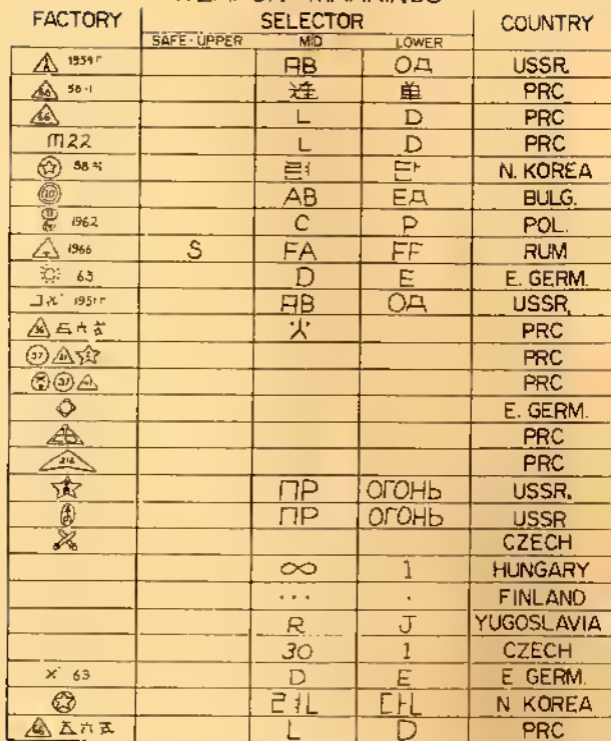 FACTORY SELECTOR COUNTRY
SAFE-UPPER MID LOWER
1959г АВ ОД USSR
66 56-1 连 单 PRC
66 L D PRC
M22 L D PRC
58 식 려 다 N. KOREA
10 АВ ЕД BULG.
11 1962 C P POL.
1966 S FA FF RUM
63 D E E. GERM.
1951г АВ ОД USSR.
36 五六式 火 PRC
37 PRC
37 PRC
E. GERM.
PRC
316 PRC
ПР ОГОНЬ USSR.
ПР ОГОНЬ USSR
CZECH
∞ 1 HUNGARY
... . FINLAND
R J YUGOSLAVIA
30 1 CZECH
63 D E E GERM.
련 단 N KOREA
66 五六式 L D PRC